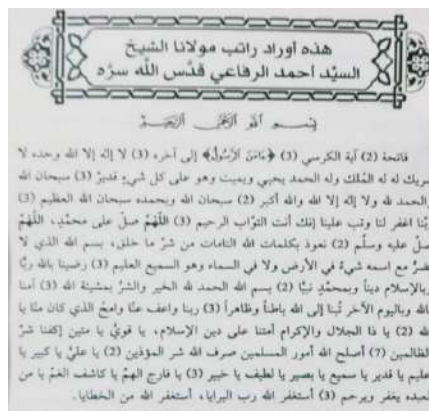 هذه أوراد راتب مولانا الشيخ
السيّد أحمد الرفاعي قدّس الله سرّه
بِسْمِ اللهِ الرَّحْمٰنِ الرَّحِيْمِ
فاتحة (2) آية الكرسي (3) ﴿ءَامَنَ ٱلرَّسُولُ﴾ إلى آخره (3) لا إله إلا الله وحده لا
شريك له له المُلك وله الحمد يحيي ويميت وهو على كل شيءٍ قديرٌ (3) سبحان الله
والحمد لله ولا إله إلا الله والله أكبر (2) سبحان الله وبحمده سبحان الله العظيم (3)
ربّنا اغفر لنا وتب علينا إنك أنت التوّاب الرحيم (3) اللّهمّ صلّ على محمّد، اللّهمّ
صلّ عليه وسلّم (2) نعوذ بكلمات الله التامات من شرّ ما خلق، بسم الله الذي لا
يضرّ مع اسمه شيءٌ في الأرض ولا في السماء وهو السميع العليم (3) رضينا بالله ربًّا
وبالإسلام دينًا وبمحمّدٍ نبيًّا (2) بسم الله الحمد لله الخير والشرّ بمشيئة الله (3) آمنا
بالله وباليوم الآخر تُبنا إلى الله باطناً وظاهراً (3) ربنا واعف عنّا وامحُ الذي كان منّا يا
الله (2) يا ذا الجلال والإكرام أمتنا على دين الإسلام، يا قويُّ يا متين إكفنا شرّ
الظالمين (7) أصلح الله أمور المسلمين صرف الله شر المؤذين (2) يا عليُّ يا كبير يا
عليم يا قدير يا سميع يا بصير يا لطيف يا خبير (3) يا فارج الهمّ يا كاشف الغمّ يا من
لعبده يغفر ويرحم (3) أستغفر الله رب البرايا، أستغفر الله من الخطايا.